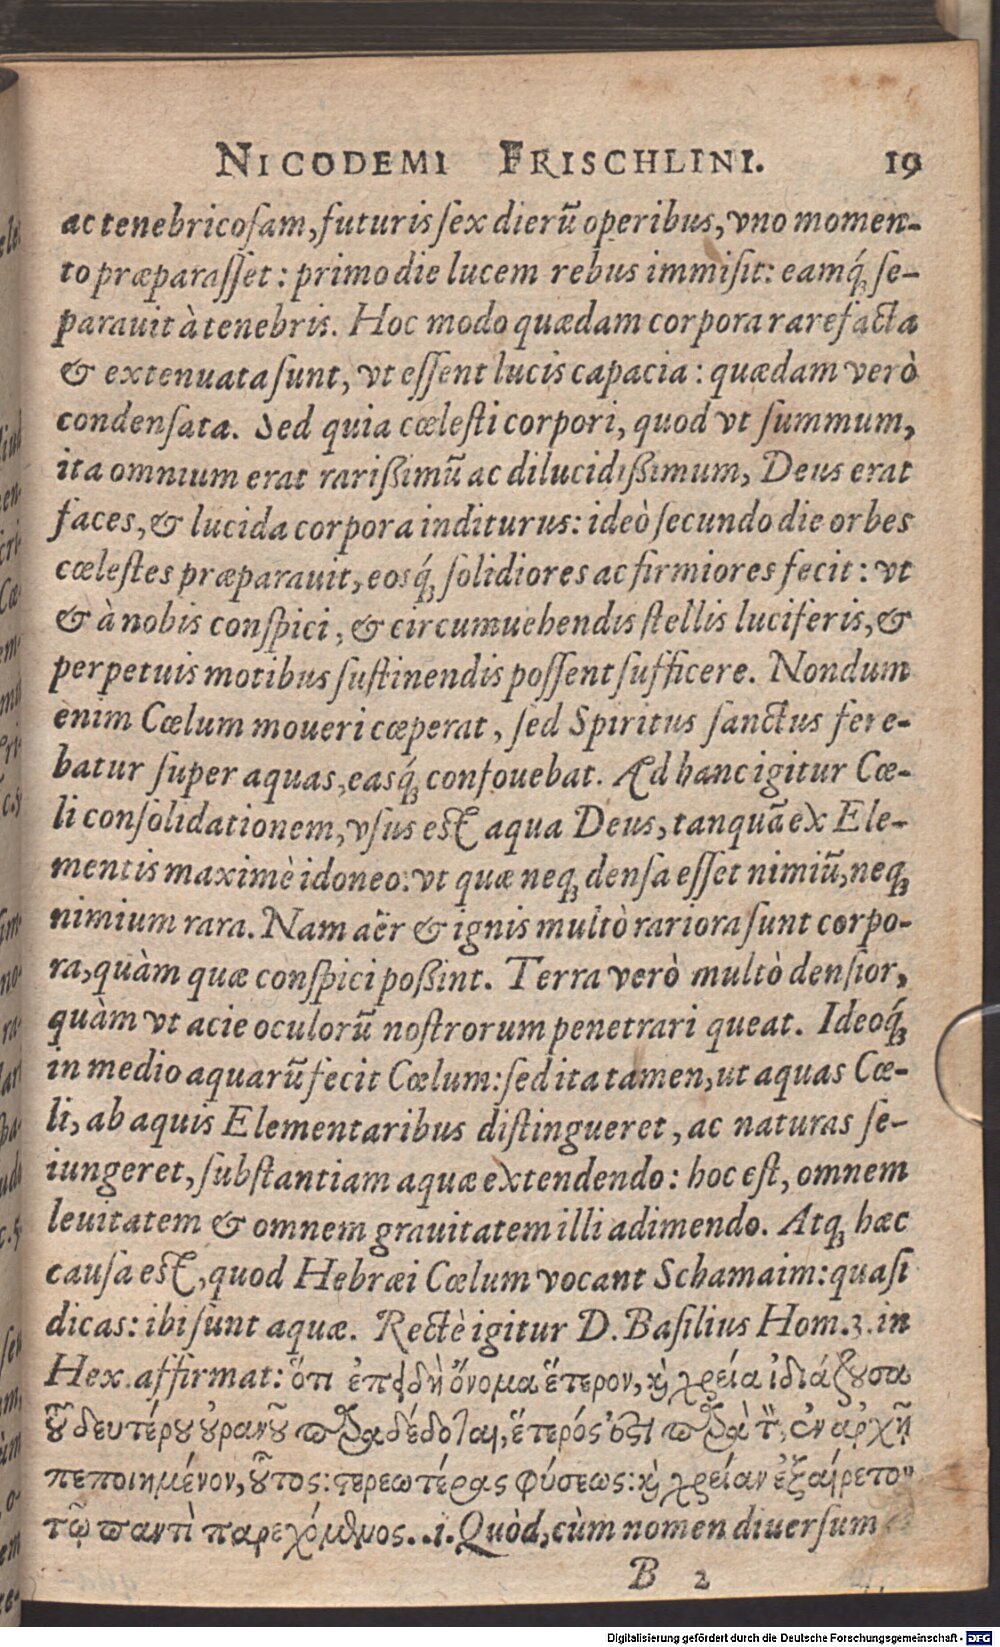 NICODEMI FRISCHLINI. 19
ac tenebricoſam, futuris ſex dierũ operibus, vno momen-
to præparaſſet: primo die lucem rebus immiſit: eamq́; ſe-
parauit à tenebris. Hoc modo quædam corpora rarefacta
& extenuata ſunt, vt eſſent lucis capacia: quædam verò
condenſata. Sed quia cœleſti corpori, quod vt ſummum,
ita omnium erat rarißimũ ac dilucidißimum, Deus erat
faces, & lucida corpora inditurus: ideò ſecundo die orbes
cœleſtes præparauit, eosq́; ſolidiores ac firmiores fecit: vt
& à nobis conſpici, & circumuehendis ſtellis luciferis, &
perpetuis motibus ſuſtinendis poſſent ſufficere. Nondum
enim Cœlum moueri cœperat, ſed Spiritus ſanctus fere-
batur ſuper aquas, easq́; confouebat. Ad hanc igitur Cœ-
li conſolidationem, vſus eſt aqua Deus, tanquã ex Ele-
mentis maximè idoneo: vt quæ neq; denſa eſſet nimiũ, neq;
nimium rara. Nam aër & ignis multò rariora ſunt corpo-
ra, quàm quæ conſpici poßint. Terra verò multò denſior,
quàm vt acie oculorũ noſtrorum penetrari queat. Ideoq́;
in medio aquarũ fecit Cœlum: ſed ita tamen, ut aquas Cœ-
li, ab aquis Elementaribus diſtingueret, ac naturas ſe-
iungeret, ſubſtantiam aquæ extendendo: hoc eſt, omnem
leuitatem & omnem grauitatem illi adimendo. Atq; hæc
cauſa eſt, quod Hebræi Cœlum vocant Schamaim: quaſi
dicas: ibi ſunt aquæ. Rectè igitur D. Baſilius Hom. 3. in
Hex. affirmat: ὅτι ἐπειδὴ ὄνομα ἕτερον, καὶ χρεία ἰδιάζουσα
τοῦ δευτέρου οὐρανοῦ παραδέδοται, ἕτερός ἐστι παρὰ τὸν, ἐν ἀρχῇ
πεποιημένον, οὗτος: στερεωτέρας φύσεως: καὶ χρείαν ἐξαίρετον
τῷ παντὶ παρεχόμενος. .i. Quòd, cùm nomen diuerſum
B 2
Digitalisierung gefördert durch die Deutsche Forschungsgemeinschaft - DFG